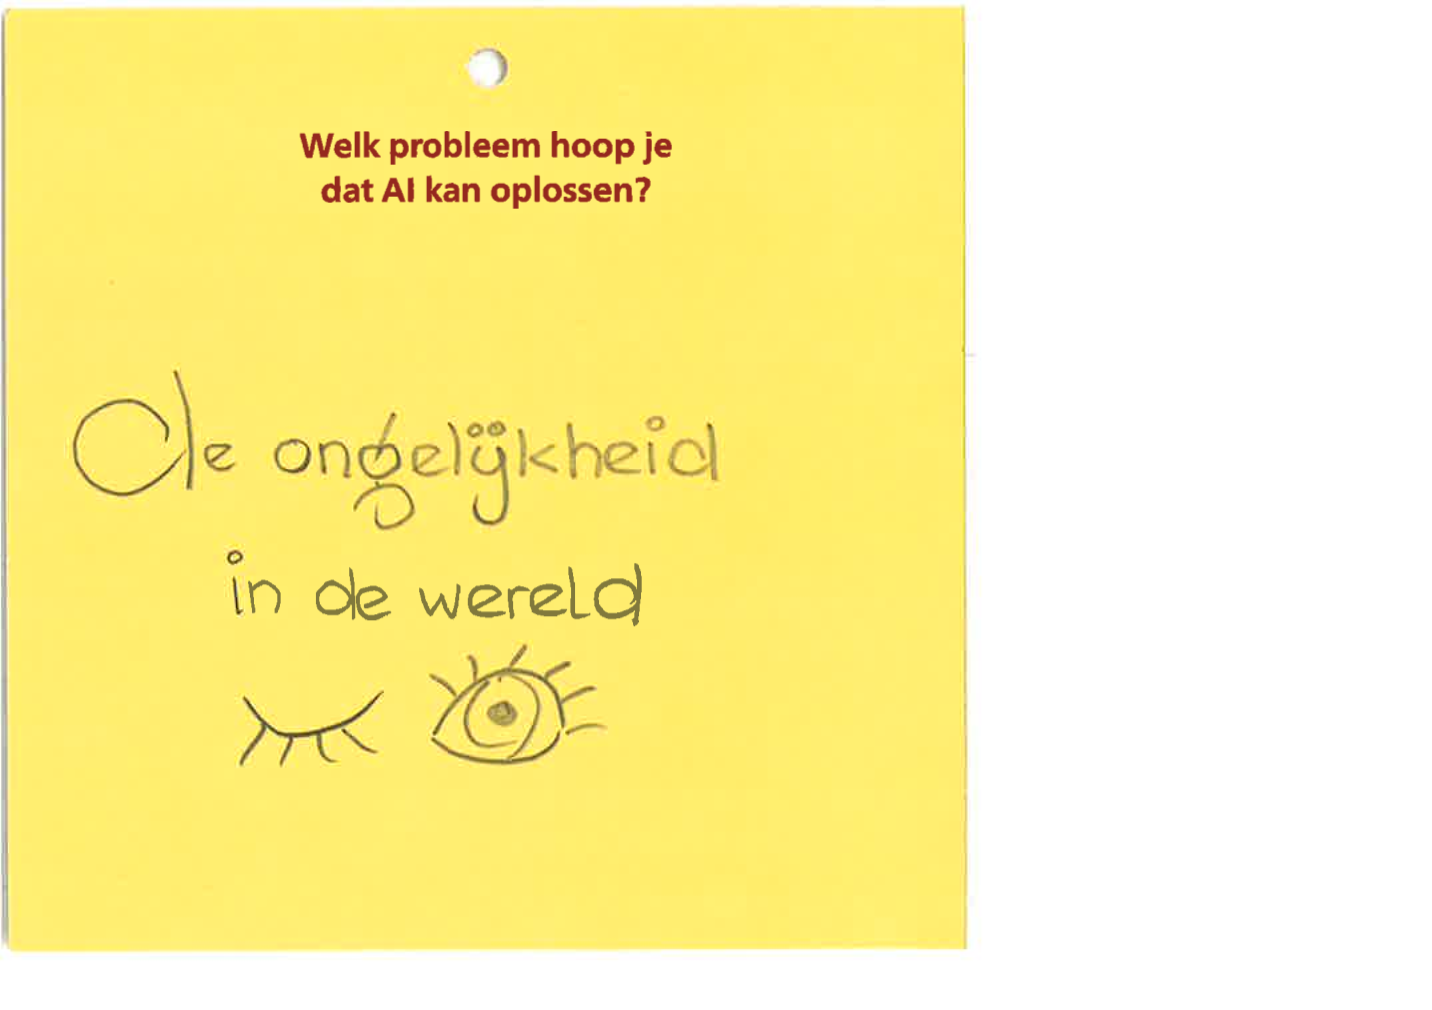 Welk probleem hoop je
dat AI kan oplossen?
De ongelijkheid
in de wereld